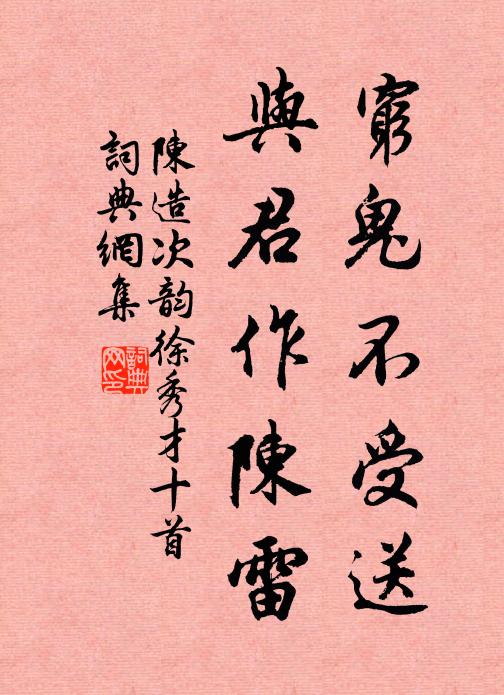 窮鬼不受送
與君作陳雷
陳造次韵徐秀才十首
詞典網集
詞典網印